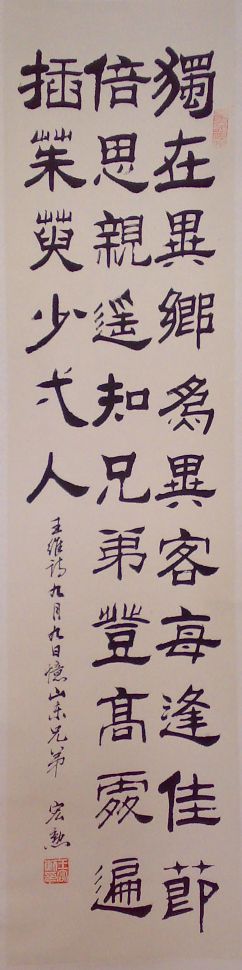 獨在異鄉為異客每逢佳節
倍思親遙知兄弟登高處遍
插茱萸少弌人
王維詩九月九日憶山東兄弟 宏勲